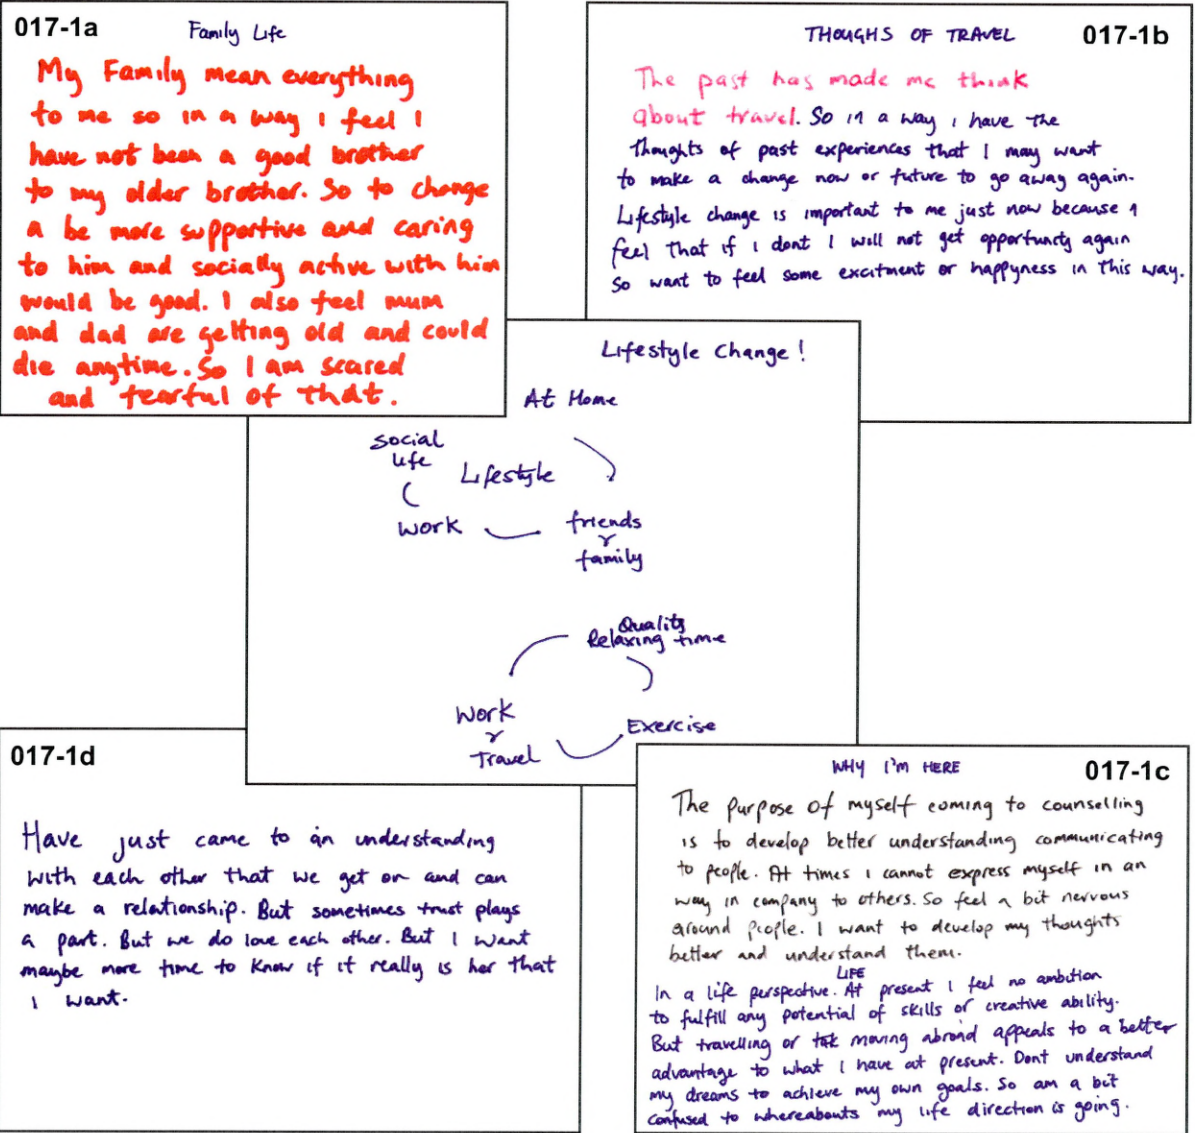 017-1a
Family Life
My Family mean everything
to me so in a way I feel I
have not been a good brother
to my older brother. So to change
a be more supportive and caring
to him and socially active with him
would be good. I also feel mum
and dad are getting old and could
die anytime. So I am scared
and fearful of that.
THOUGHS OF TRAVEL
017-1b
The past has made me think
about travel. So in a way i have the
thoughts of past experiences that I may want
to make a change now or future to go away again.
Lifestyle change is important to me just now because i
feel that if i dont I will not get opportunity again
So want to feel some excitment or happyness in this way.
Lifestyle Change!
At Home
social
life
Lifestyle
work
friends
family
Quality
Relaxing time
Work
Travel
Exercise
017-1d
Have just came to an understanding
with each other that we get on and can
make a relationship. But sometimes trust plays
a part. But we do love each other. But I want
maybe more time to know if it really is her that
i want.
WHY I'm HERE
017-1c
The purpose of myself coming to counselling
is to develop better understanding communicating
to people. At times i cannot express myself in an
way in company to others. So feel a bit nervous
around people. I want to develop my thoughts
better and understand them.
LIFE
In a life perspective. At present I feel no ambition
to fulfill any potential of skills or creative ability.
But travelling or moving abroad appeals to a better
advantage to what I have at present. Dont understand
my dreams to achieve my own goals. So am a bit
confused to whereabouts my life direction is going.